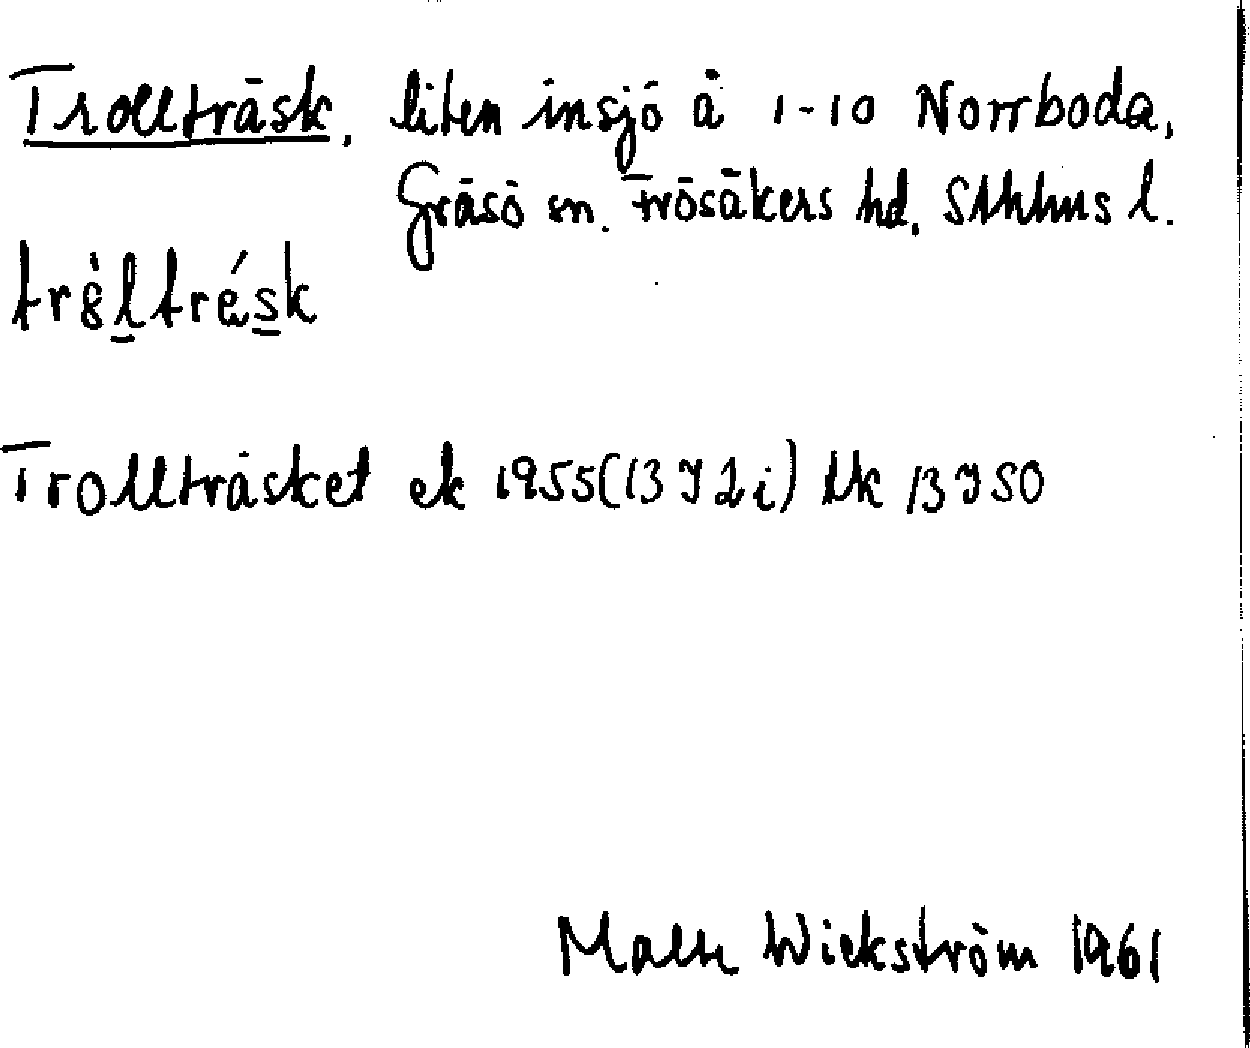 Trollträsk, liten insjö å 1-10 Norrboda,
Gräsö sn. Frösåkers hd, Sthlms l.
Trollträsket ek 1955 (13 I 2 i) Uk 13 I SO
Malte Wickström 1961